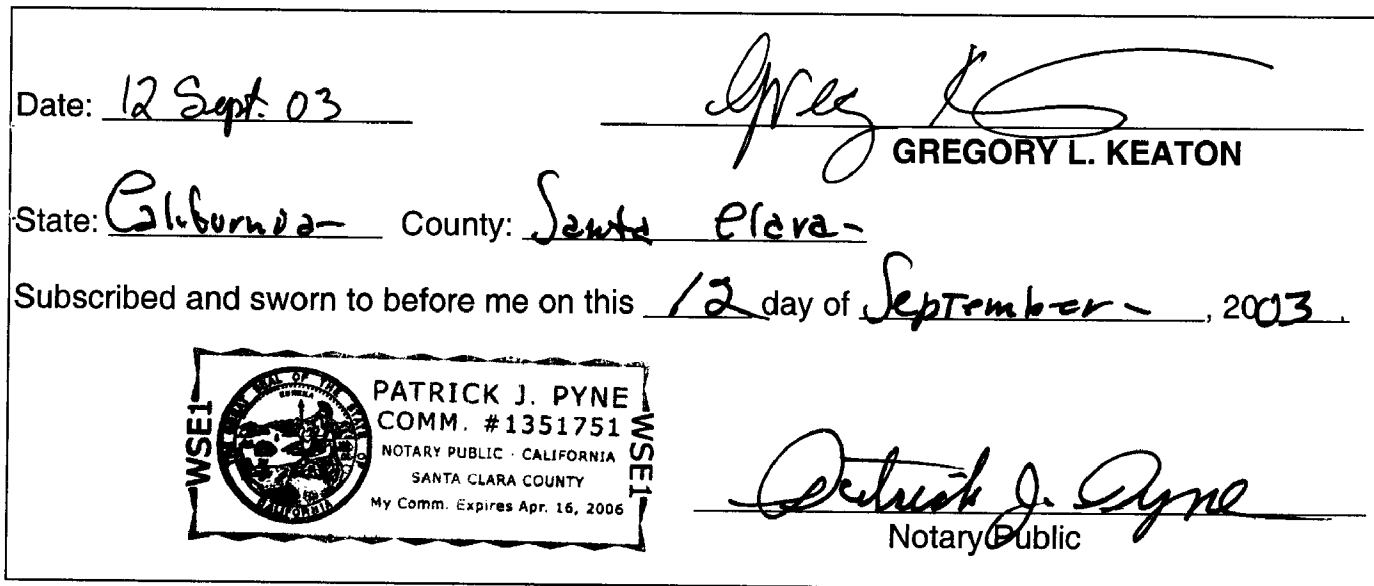 Date: 12 Sept. 03 Greg K
GREGORY L. KEATON
State: California County: Santa Clara
Subscribed and sworn to before me on this 12 day of September, 2003.
THE GREAT SEAL OF THE STATE OF CALIFORNIA
EUREKA
WSE1
PATRICK J. PYNE
COMM. #1351751
NOTARY PUBLIC · CALIFORNIA
SANTA CLARA COUNTY
My Comm. Expires Apr. 16, 2006
WSE1
Patrick J. Pyne
Notary Public